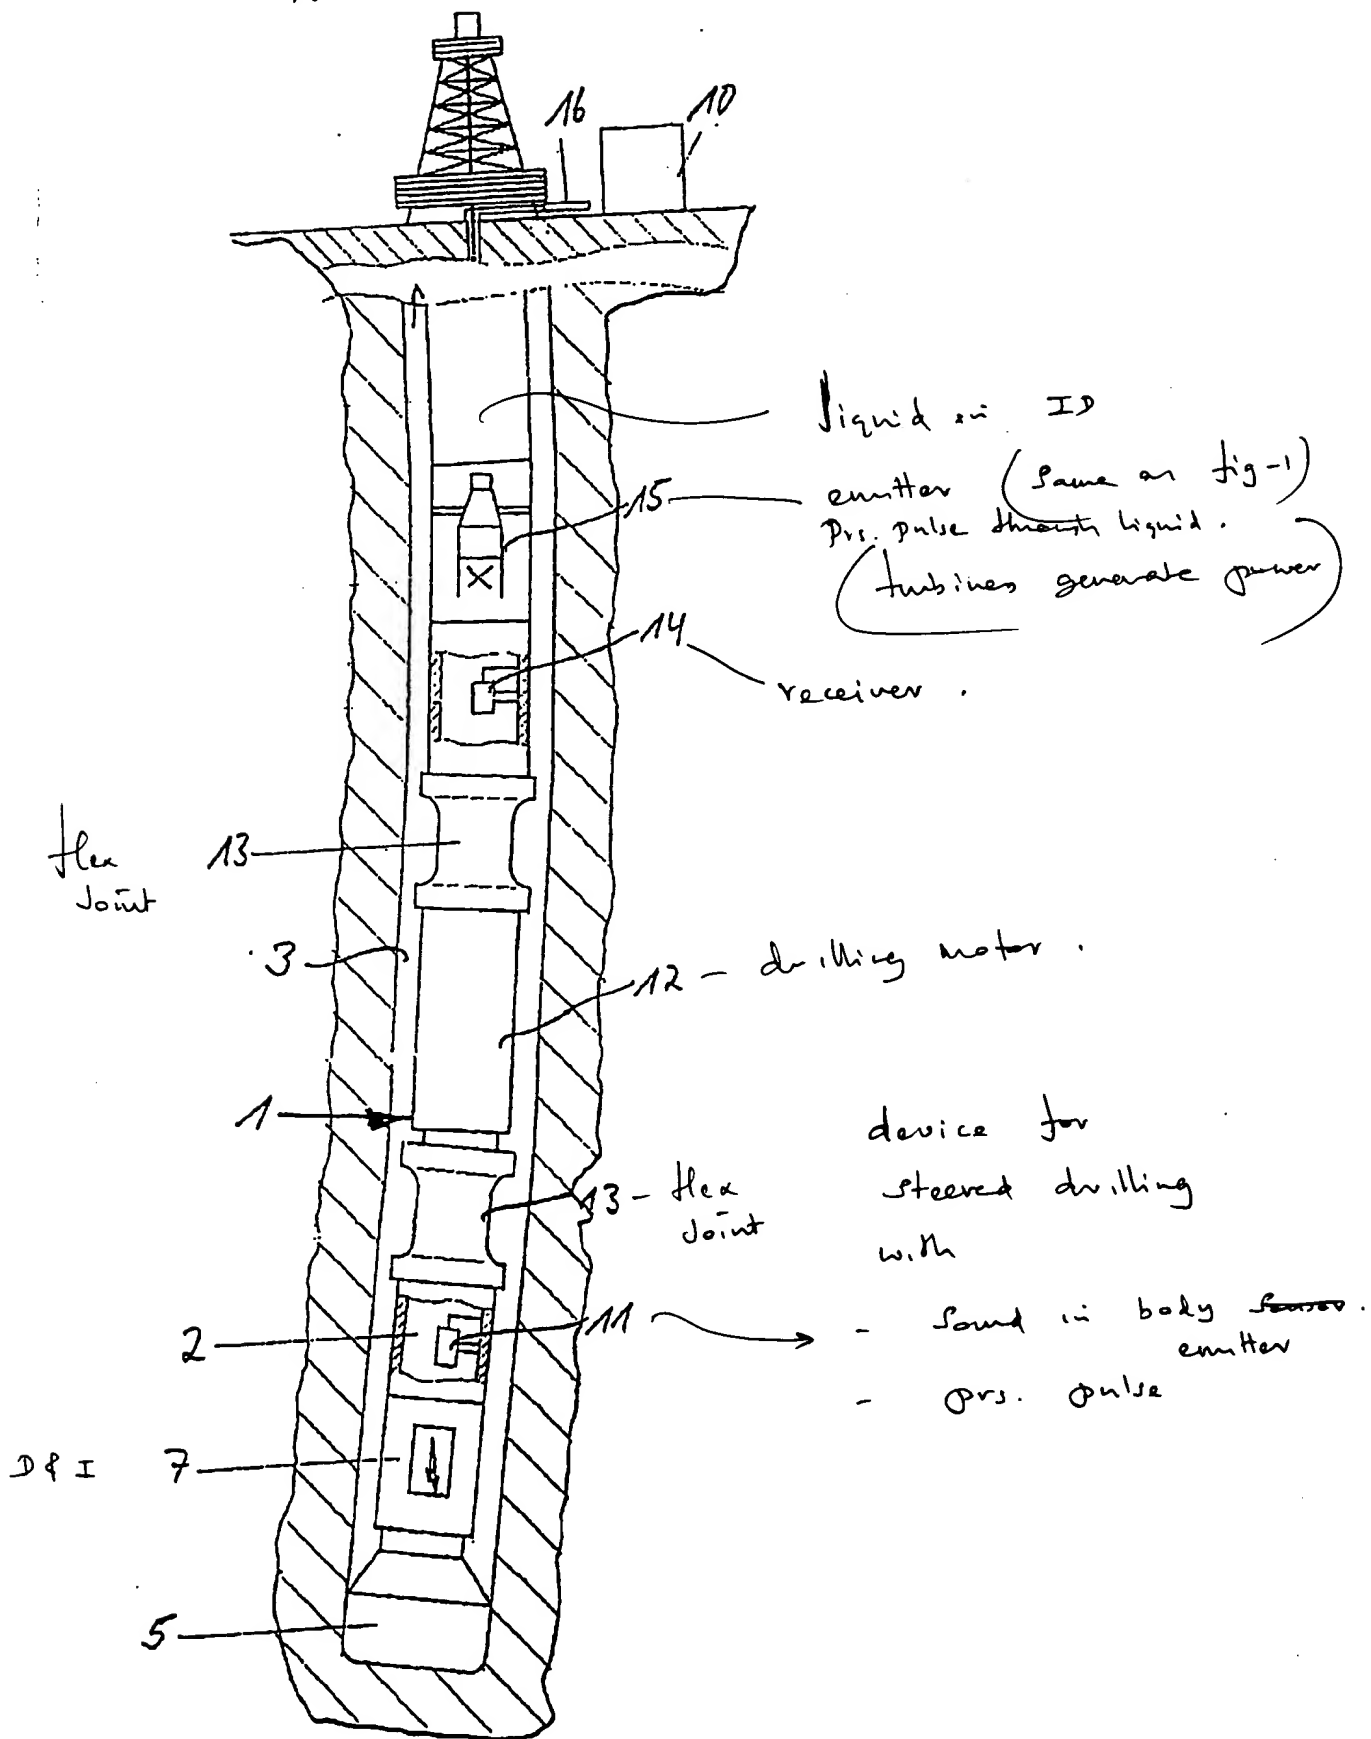 16
10
liquid in ID
15
emitter (same as fig-1)
Prs. pulse through liquid.
(turbines generate power)
14
receiver.
flex
Joint
13
3
12 - drilling motor.
1
device for
steered drilling
with
13 - flex
Joint
2
11
- Sound in body sensor.
emitter
- prs. pulse
D & I 7
5